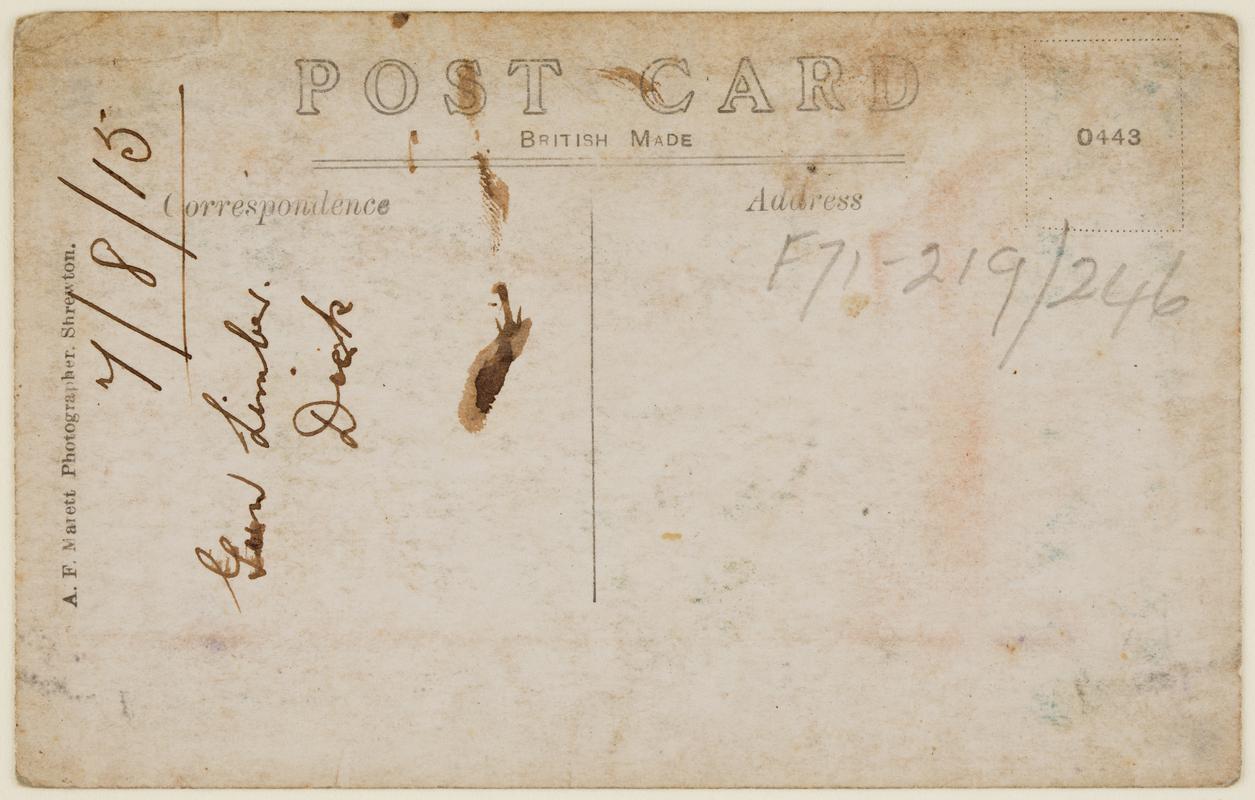 POST CARD
BRITISH MADE
0443
Correspondence
Address
F71-219/246
A. F. Marett Photographer. Shrewton.
7/8/15
Gun Limber.
Dick